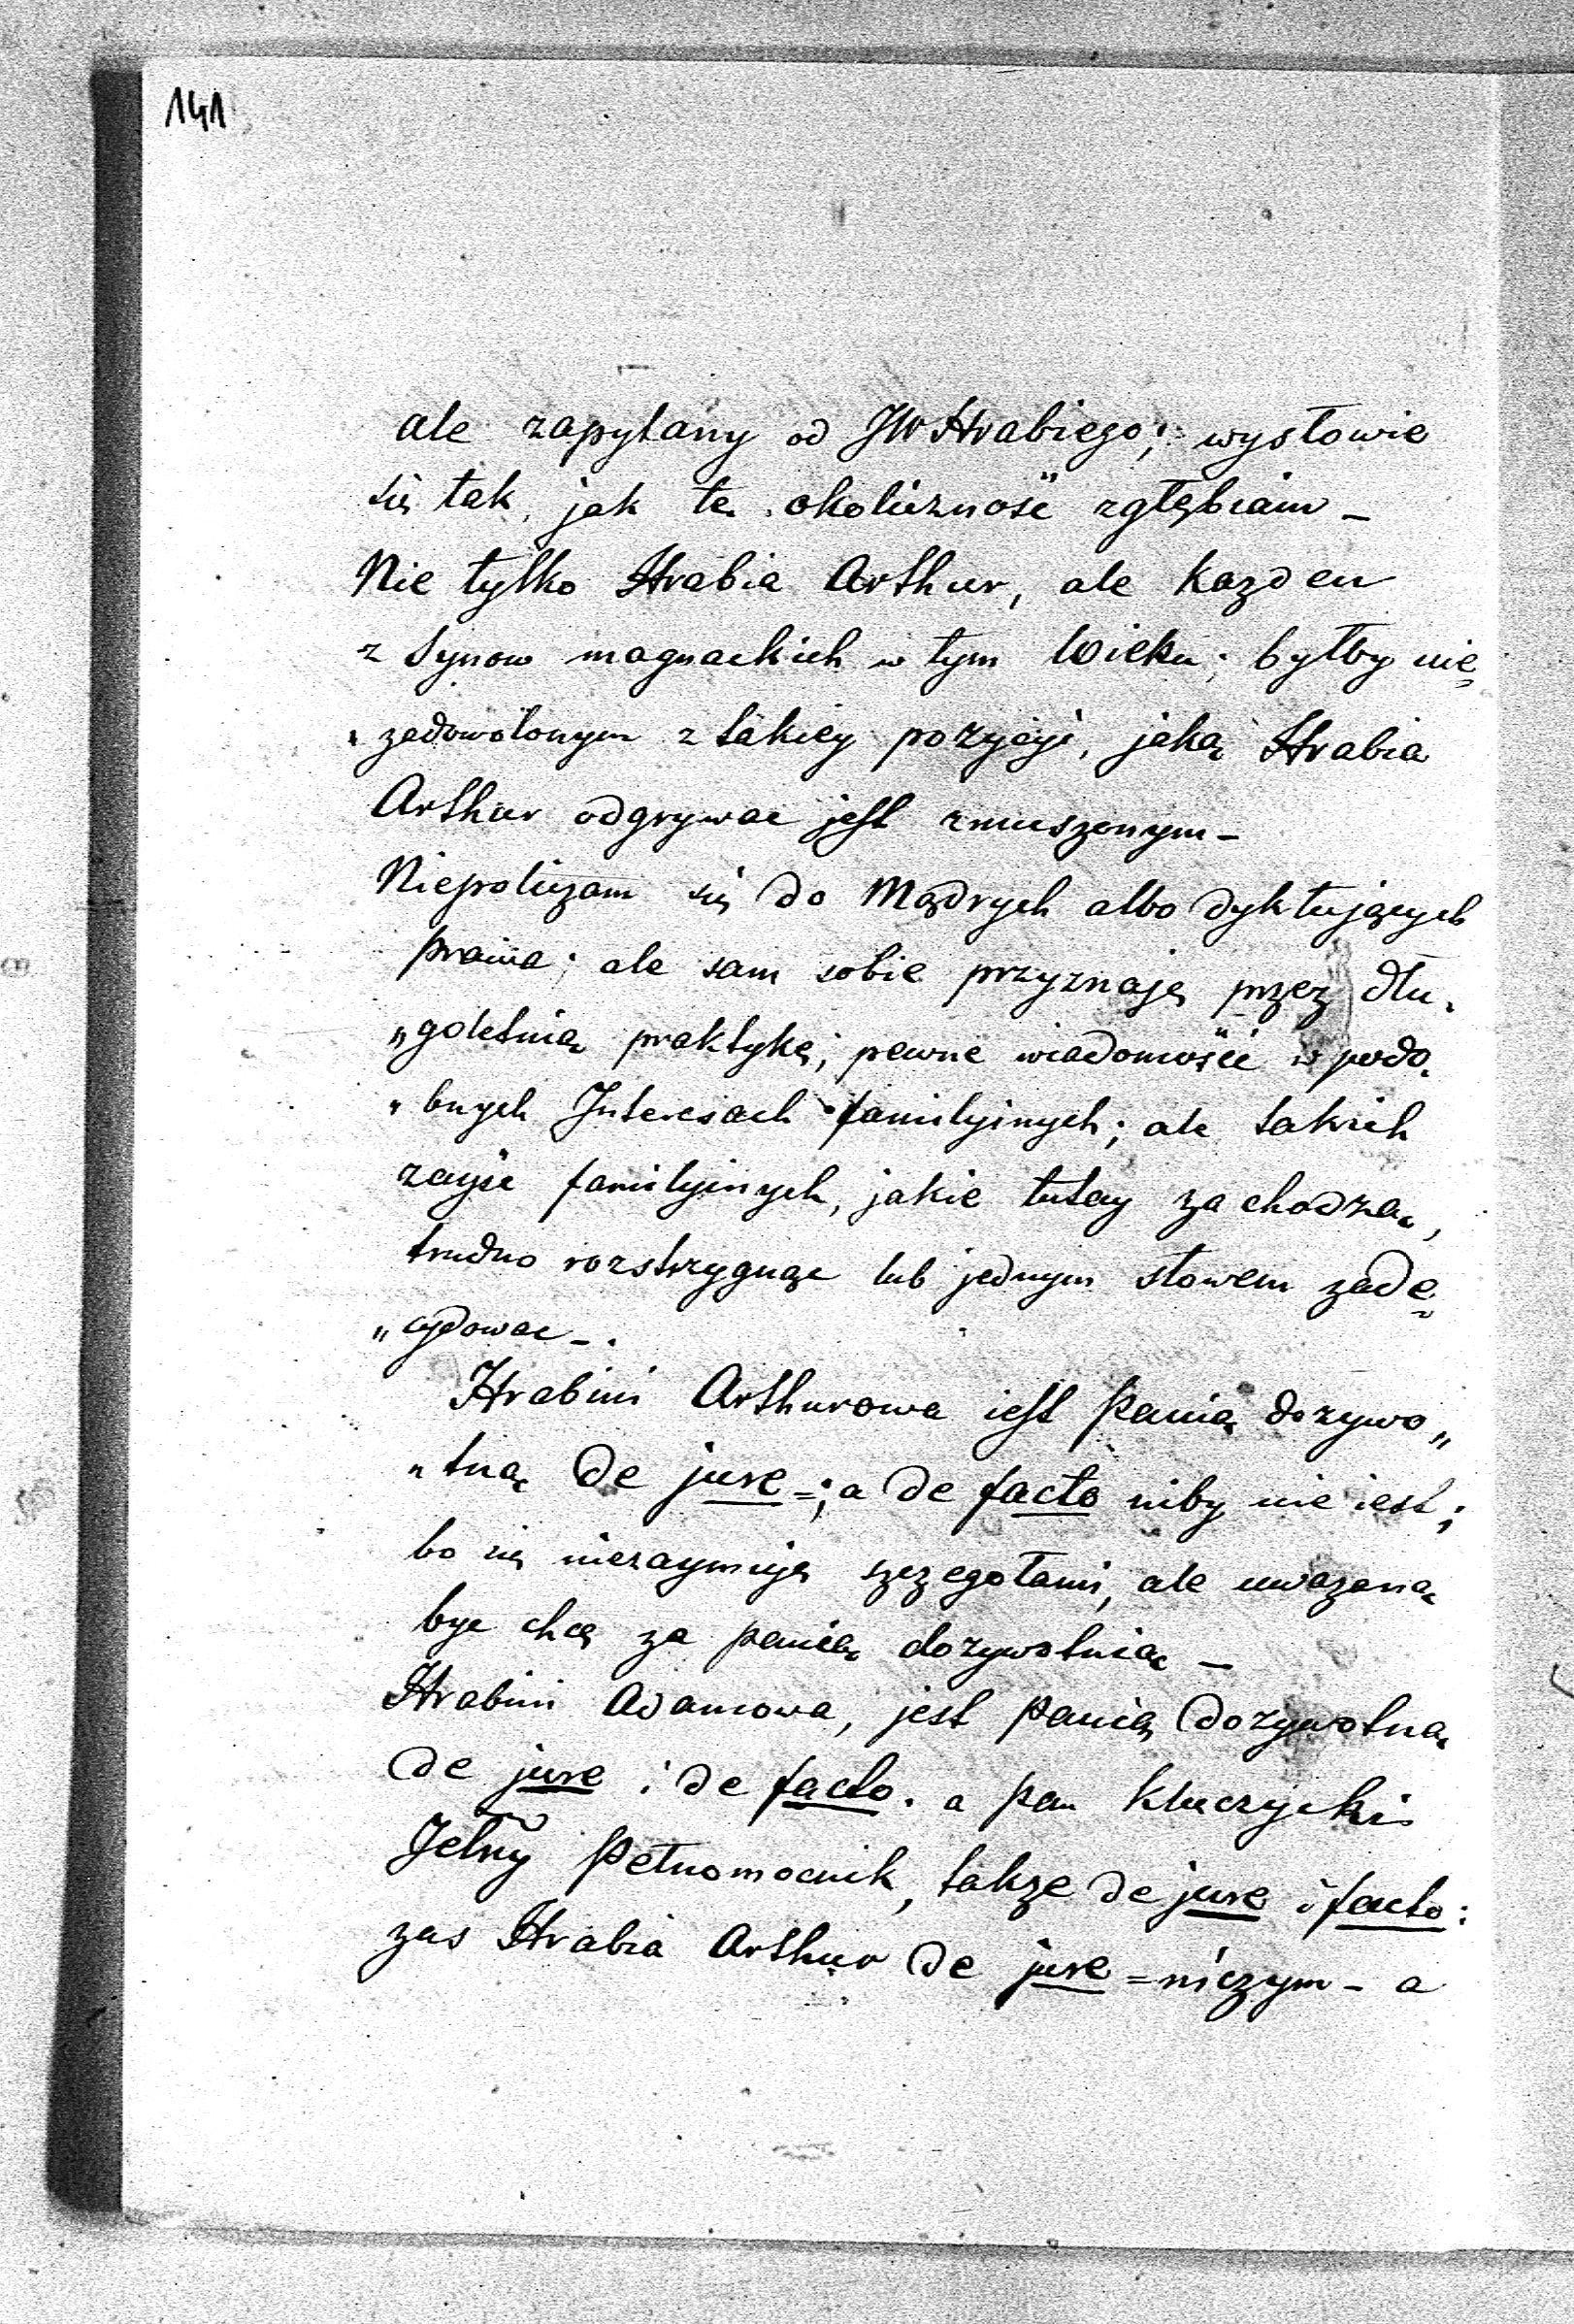 141
ale zapytany od JW Hrabiego; wysłowie
się tak, jak te okoliczność zgłębiam –
Nie tylko Hrabia Arthur, ale kazden
z Synow magnackich w tym Wieku; byłby nie
„zadowolonym z takiey pozycyi, jaką Hrabia
Arthur odgrywac jest zmuszonym –
Niepoliczam się do Mądrych albo dyktujących
prawa; ale sam sobie przyznaję przez dłu„
„goletnią praktykę; pewne wiadomości w podo„
„bnych Interesach familyinych; ale takich
zayść familyinych, jakie tutay za chodzą,
trudno rozstrzygnąc lub jednym słowem zade„
„cydowac –.
Hrabini Arthurowa iest Panią dozywo„
„tną De jure =; a De facto niby nie iest;
bo się niezaymuje szczegołami, ale uwazaną
byc chcę za panią dozywotnią –
Hrabini Adamowa, jest Panią Dozywotną
De jure i De facto. a Pan Kluczycki
Jelny Pełnomocnik, takze De jure i facto:
zas Hrabia Arthur De jure = niczym – a